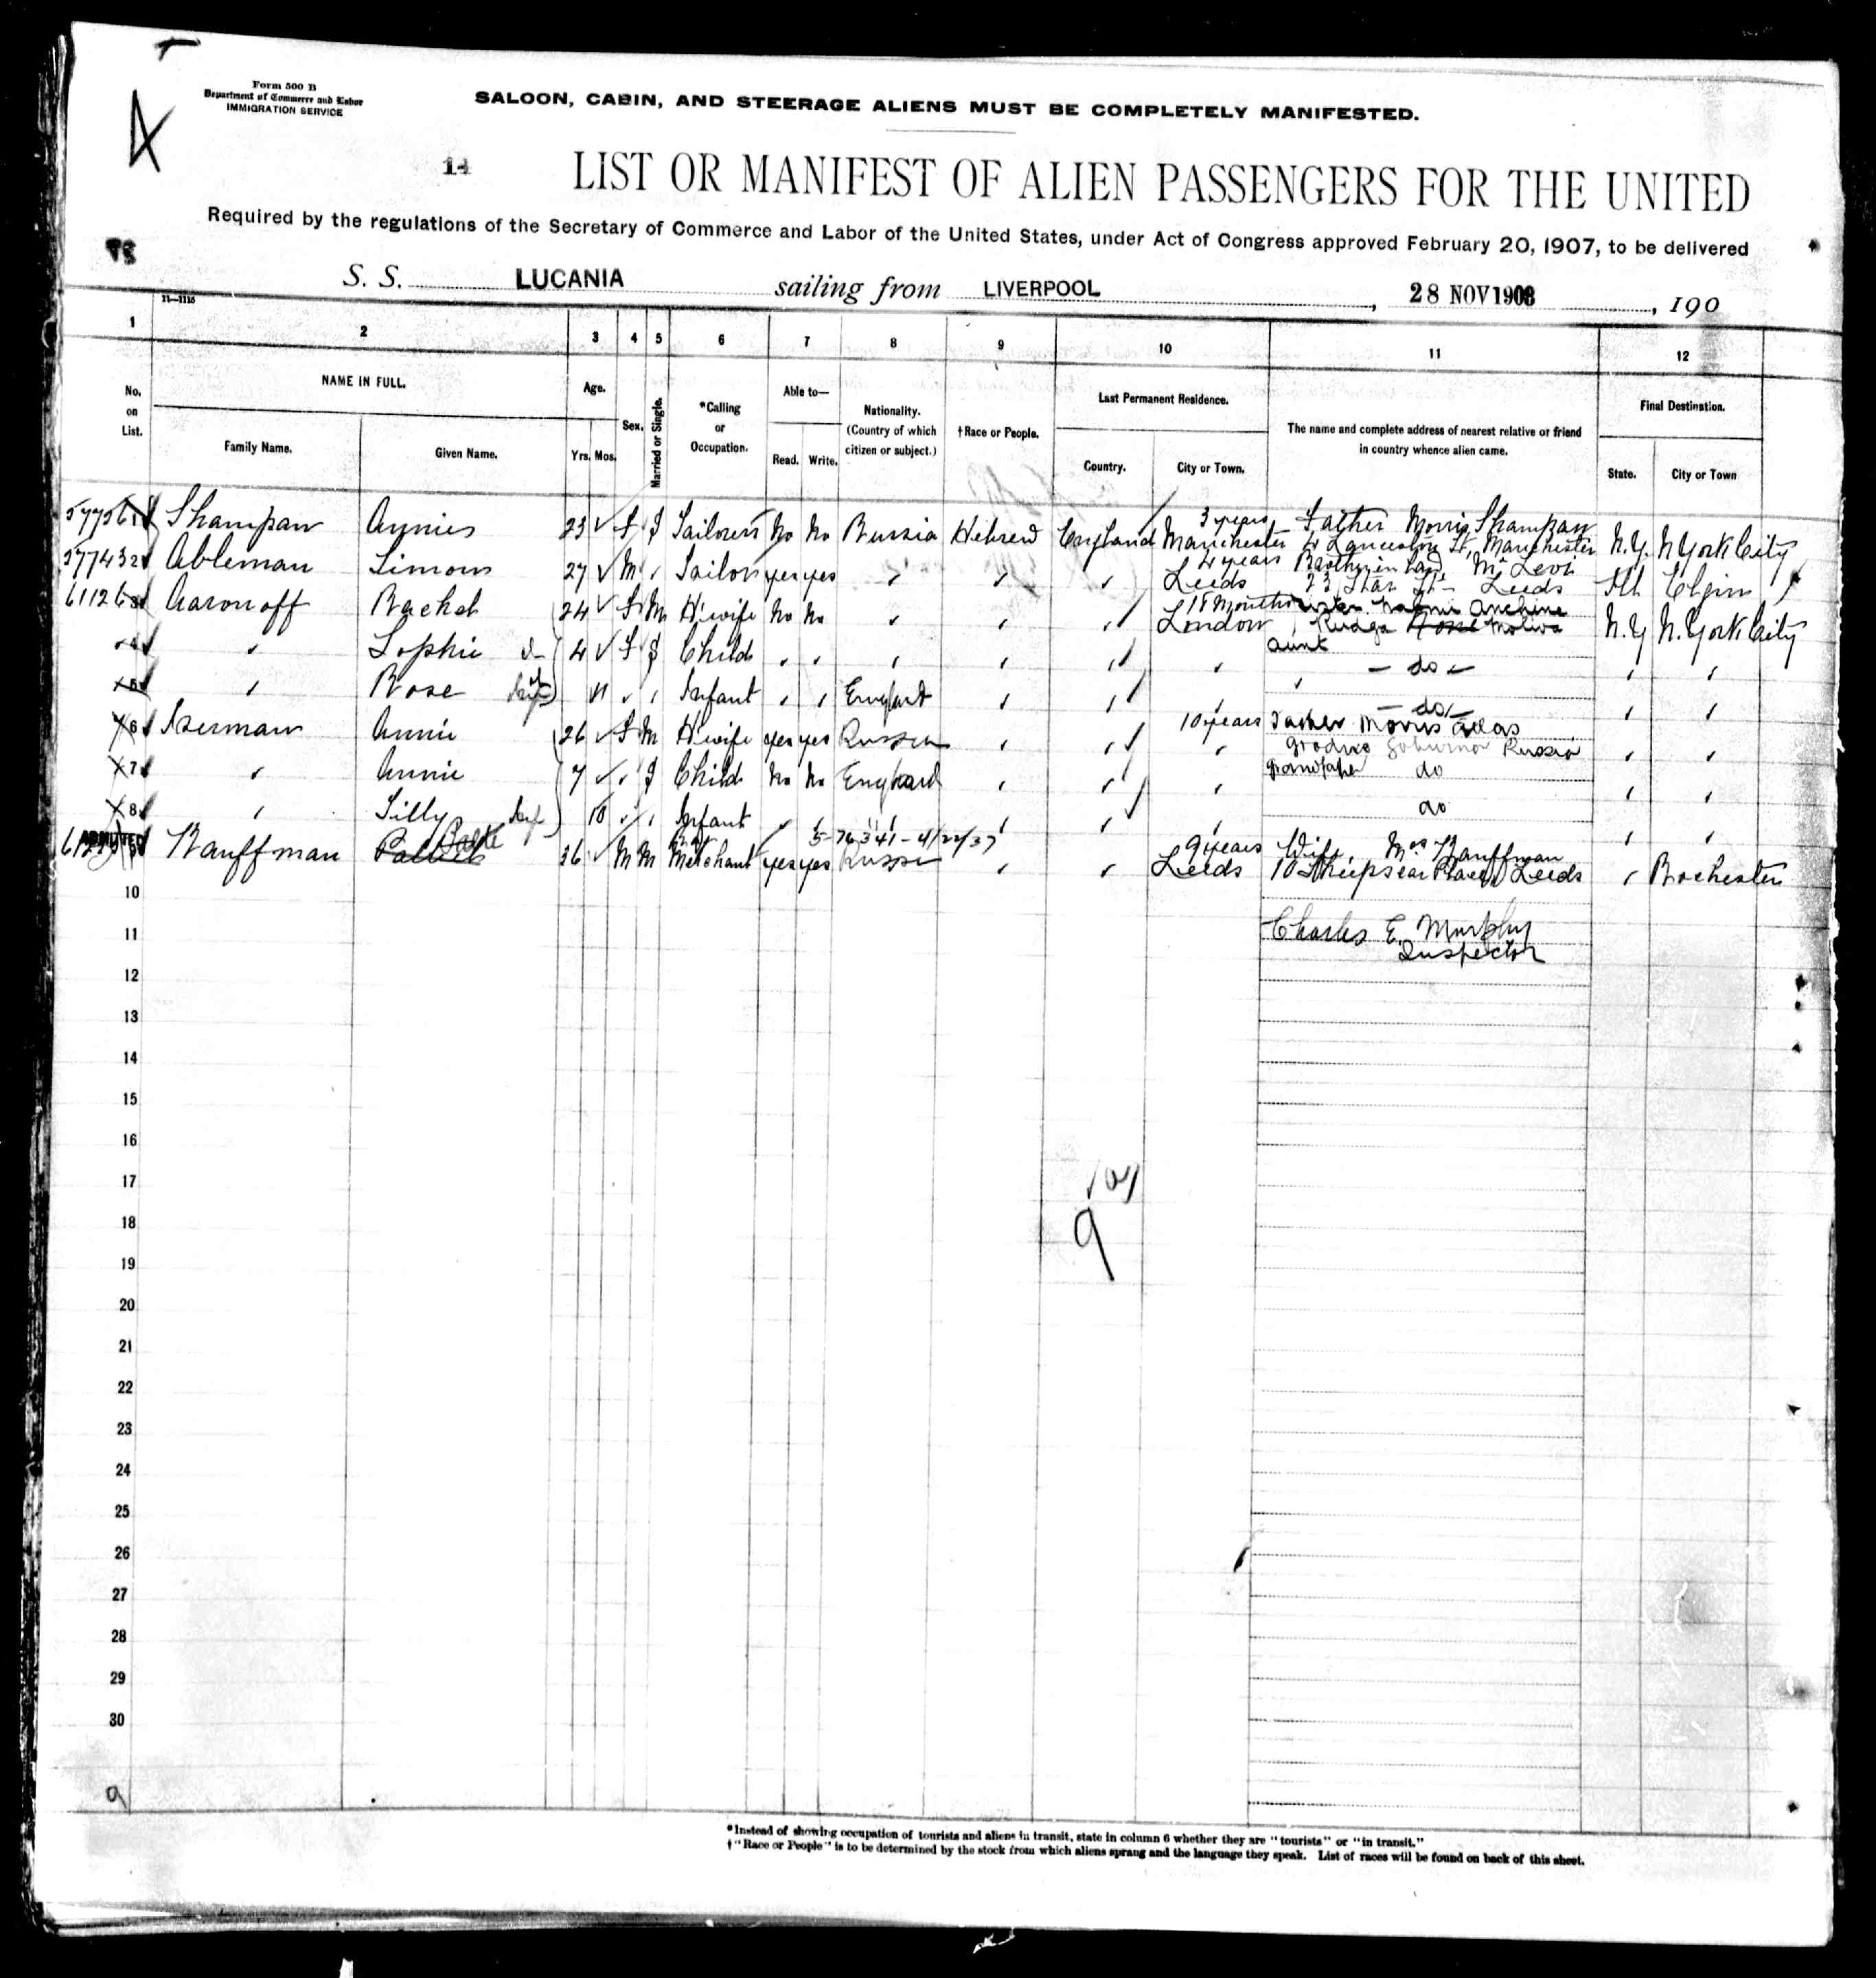 Form 500 B
Department of Commerce and Labor
IMMIGRATION SERVICE
SALOON, CABIN, AND STEERAGE ALIENS MUST BE COMPLETELY MANIFESTED.
14
LIST OR MANIFEST OF ALIEN PASSENGERS FOR THE UNITED
Required by the regulations of the Secretary of Commerce and Labor of the United States, under Act of Congress approved February 20, 1907, to be delivered
S. S. LUCANIA sailing from LIVERPOOL, 28 NOV 1908, 190
11—1115
1 2 3 4 5 6 7 8 9 10 11 12
No. on List.
NAME IN FULL.
Family Name. Given Name.
Age.
Yrs. Mos.
Sex.
Married or Single.
*Calling or Occupation.
Able to—
Read. Write.
Nationality. (Country of which citizen or subject.)
†Race or People.
Last Permanent Residence.
Country. City or Town.
The name and complete address of nearest relative or friend in country whence alien came.
Final Destination.
State. City or Town
3 years Father Morris Shampan
1 Shampan Annies 23 f S Tailoress No No Russia Hebrew England Manchester 4 Lancaster St, Manchester N.Y. N York City
4 years Mr Levi
577432 Ableman Simon 27 M " Tailor yes yes " " " Leeds 23 Star St Leeds Ill Elgin
18 Months
61126 3 Aaronoff Rachel 24 f M H'wife No No " " " London N.Y N. York City
aunt
4 " Sophie 4 f S Child " " " " " " — do — " "
5 " Rose 11 " " Infant " " England " " " — do — " "
10 years Father Morris
6 Annie 26 f M H'wife yes yes Russia " " " Grodno Russia " "
7 " Annie 7 " S Child No No England " " " Grandfather do " "
8 " Tilly Inf 10 " " Infant " " " " " " do " "
ADMITTED
5-76341-4/22/37
9 years Wife, Mrs Kauffman
Kauffman 36 M M Merchant yes yes Russia " " Leeds 10 Sheepscar Place Leeds " Rochester
10
11 Charles E. Murphy
Inspector
12
13
14
15
16
17
18
9
19
20
21
22
23
24
25
26
27
28
29
30
9
*Instead of showing occupation of tourists and aliens in transit, state in column 6 whether they are "tourists" or "in transit."
†"Race or People" is to be determined by the stock from which aliens sprang and the language they speak. List of races will be found on back of this sheet.